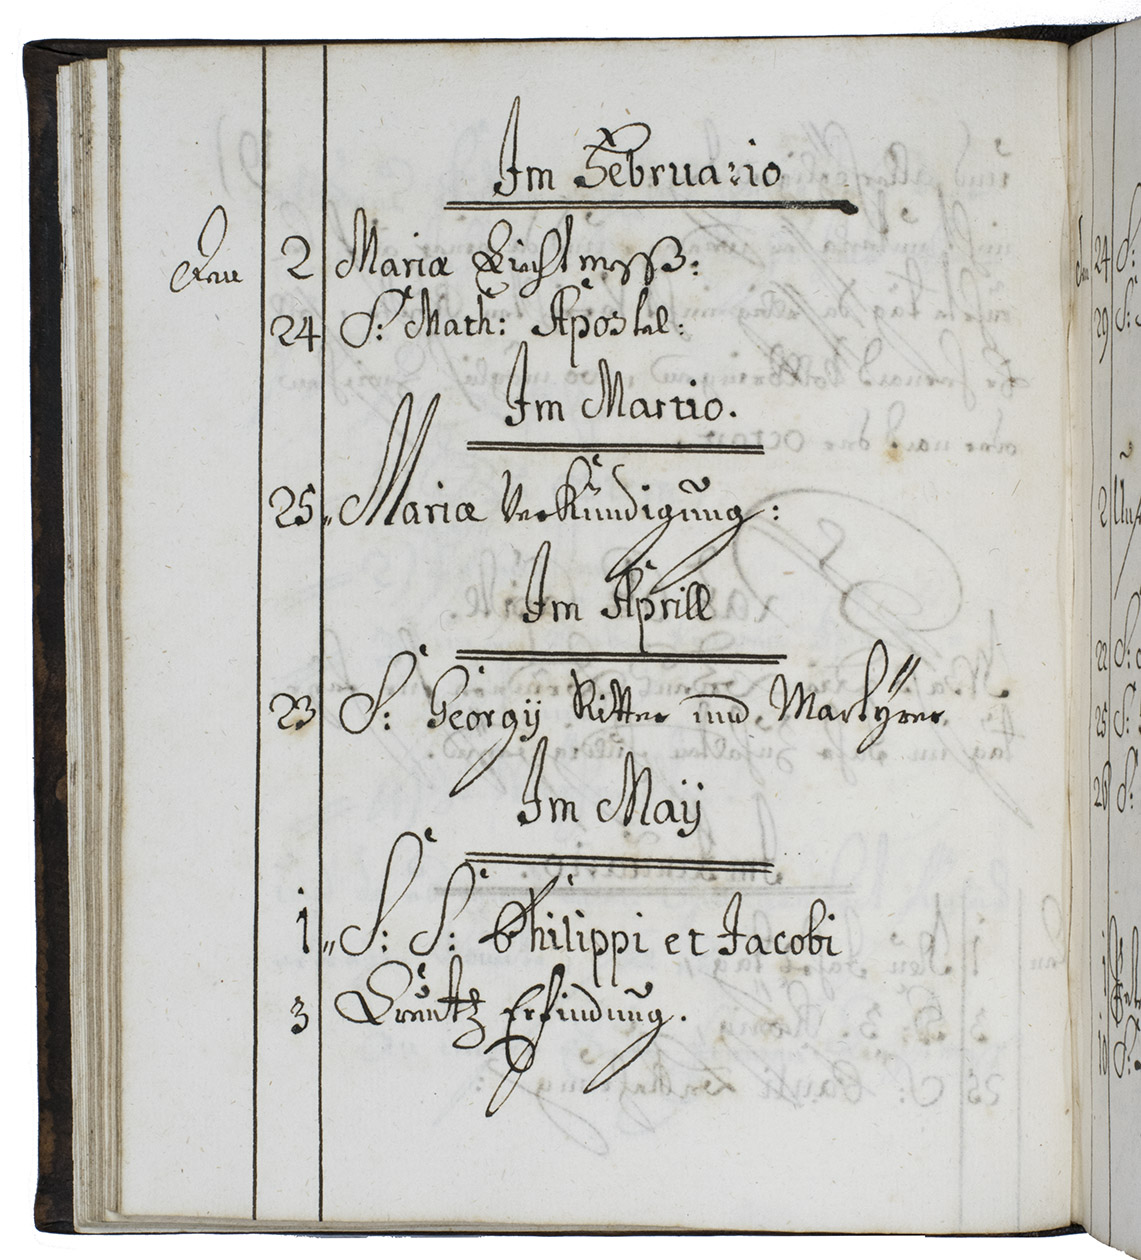 Im Februario
Den 2 Mariæ Liechtmesß:
24 S: Math: Apostel:
Im Martio.
25 „ Mariæ Verkündigung:
Im Aprill
23 S: Georgÿ Ritter und Martÿrer
Im Maÿ
1 „ S: S: Philippi et Jacobi
3 Creütz Erfindung.
24 S:
29 S:
2
22 S:
25 S:
26 S:
1
10 S: